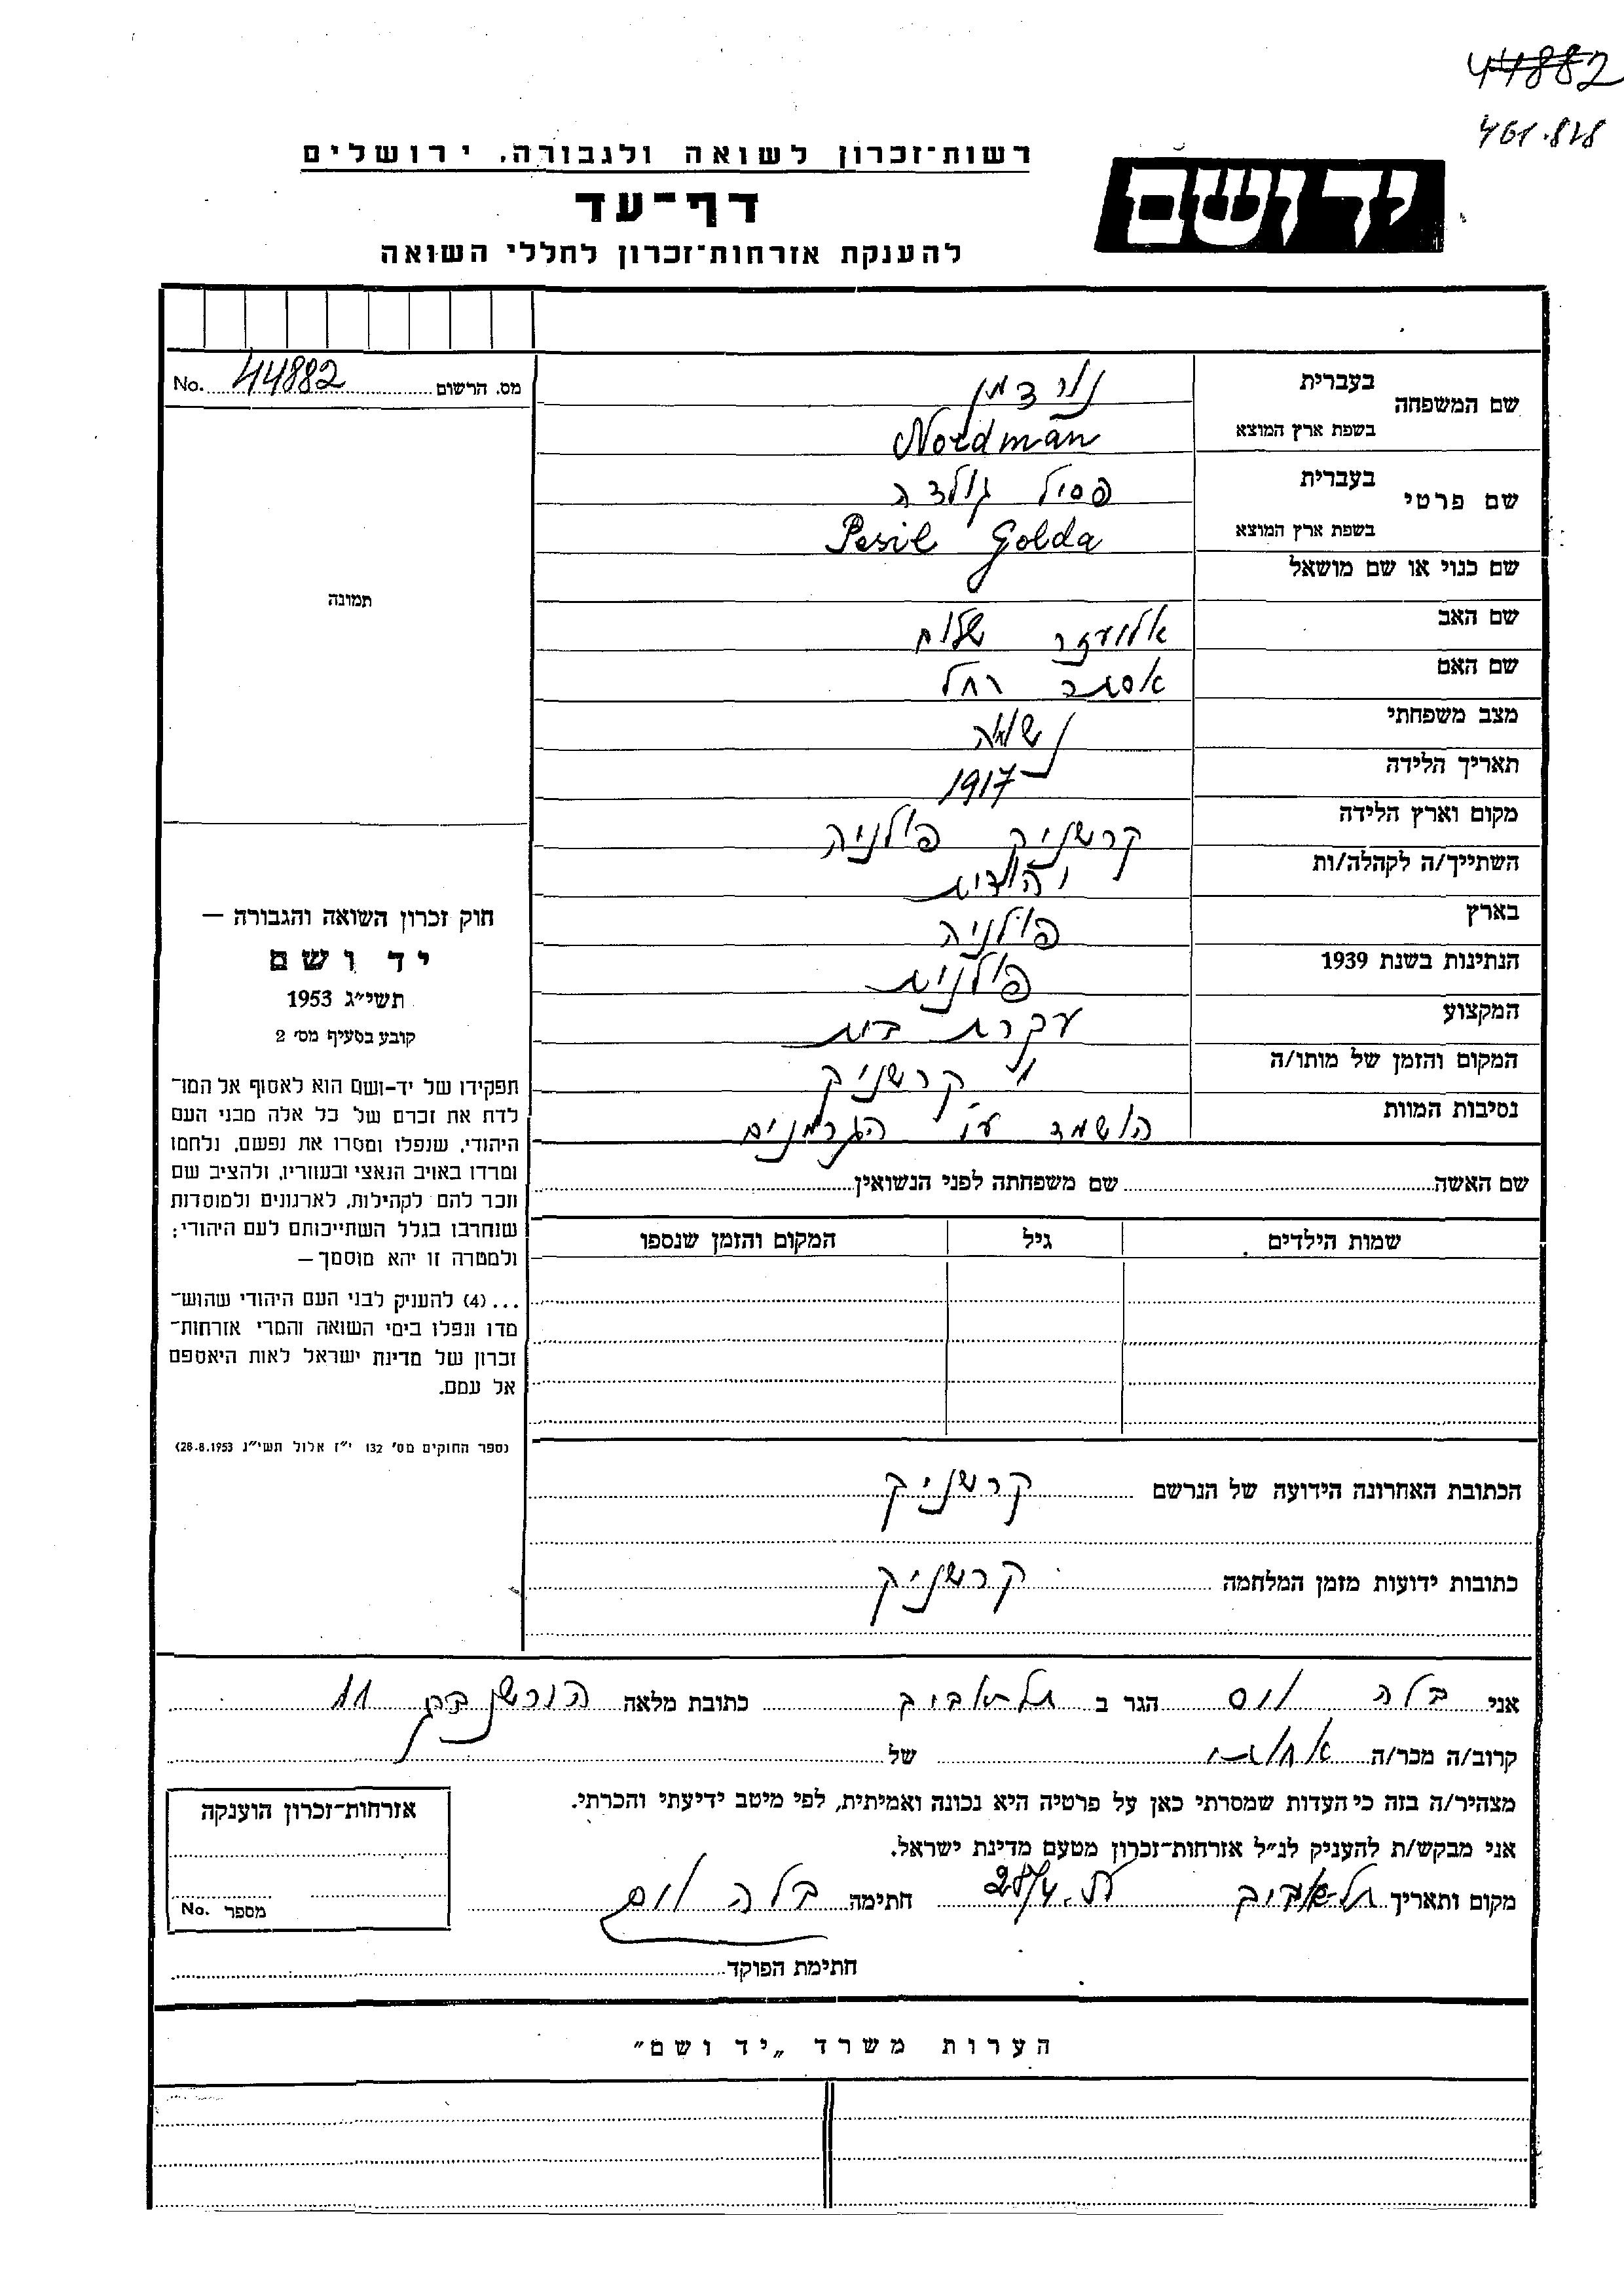 44882
461.828
רשות־זכרון לשואה ולגבורה, ירושלים
יד ושם
דף־עד
להענקת אזרחות־זכרון לחללי השואה
מס. הרשום 44882 No.
שם המשפחה בעברית נורדמן
בשפת ארץ המוצא Nordman
שם פרטי בעברית פסיל גולדה
בשפת ארץ המוצא Pesil Golda
שם כנוי או שם מושאל
שם האב אליעזר שלום
שם האם אסתר רחל
מצב משפחתי נשואה
תאריך הלידה 1917
מקום וארץ הלידה קרשניק פולניה
השתייך/ה לקהלה/ות יהודית
בארץ פולניה
הנתינות בשנת 1939 פולנית
המקצוע עקרת בית
המקום והזמן של מותו/ה קרשניק
נסיבות המוות הושמד ע״י הגרמנים
שם האשה שם משפחתה לפני הנשואין
שמות הילדים גיל המקום והזמן שנספו
הכתובת האחרונה הידועה של הנרשם קרשניק
כתובות ידועות מזמן המלחמה קרשניק
תמונה
חוק זכרון השואה והגבורה —
יד ושם
תשי״ג 1953
קובע בסעיף מס׳ 2
תפקידו של יד-ושם הוא לאסוף אל המו־
לדת את זכרם של כל אלה מבני העם
היהודי, שנפלו ומסרו את נפשם, נלחמו
ומרדו באויב הנאצי ובעוזריו, ולהציב שם
וזכר להם לקהילות, לארגונים ולמוסדות
שנחרבו בגלל השתייכותם לעם היהודי;
ולמטרה זו יהא מוסמך—
...(4) להעניק לבני העם היהודי שהוש־
מדו ונפלו בימי השואה והמרי אזרחות־
זכרון של מדינת ישראל לאות היאספם
אל עמם.
(ספר החוקים מס׳ 132 י״ז אלול תשי״ג 28.8.1953)
אני בלה ווס הגר ב תל-אביב כתובת מלאה 11
קרוב/ה מכר/ה אחותי של
מצהיר/ה בזה כי העדות שמסרתי כאן על פרטיה היא נכונה ואמיתית, לפי מיטב ידיעתי והכרתי.
אני מבקש/ת להעניק לנ״ל אזרחות־זכרון מטעם מדינת ישראל.
מקום ותאריך תל-אביב חתימה בלה ווס
חתימת הפוקד
אזרחות־זכרון הוענקה
מספר No.
הערות משרד „יד ושם”